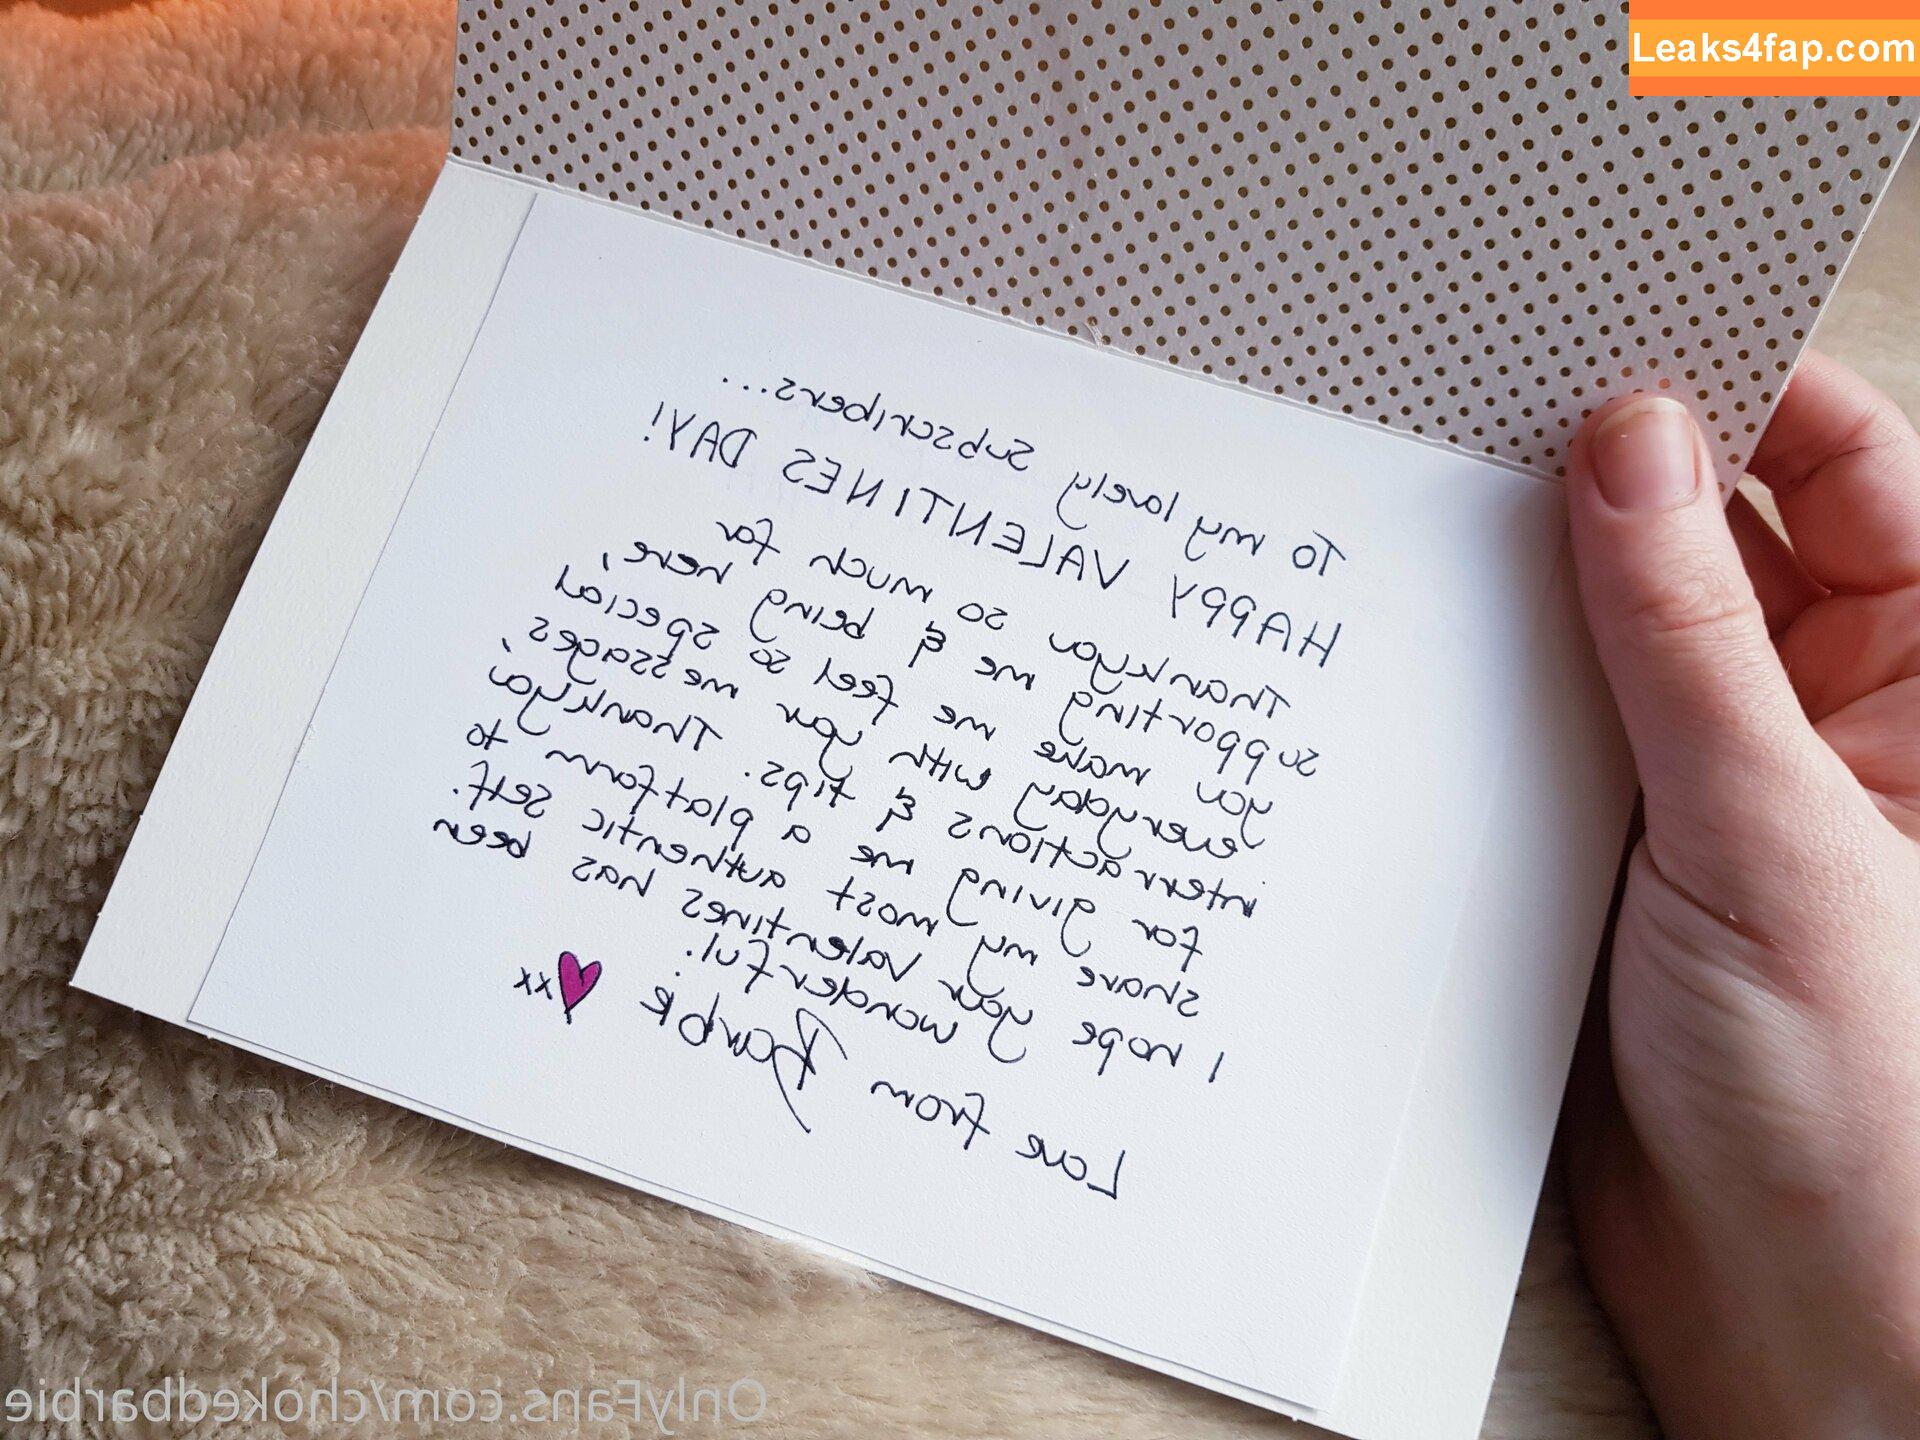 Leaks4fap.com
To my lovely subscribers...
HAPPY VALENTINES DAY!
Thankyou so much for
supporting me & being here,
you make me feel so special
everyday with your messages,
interractions & tips. Thankyou
for giving me a platform to
share my most authentic self.
I hope your valentines has been
wonderful.
Love from Barbie xx
OnlyFans.com/chokedbarbie